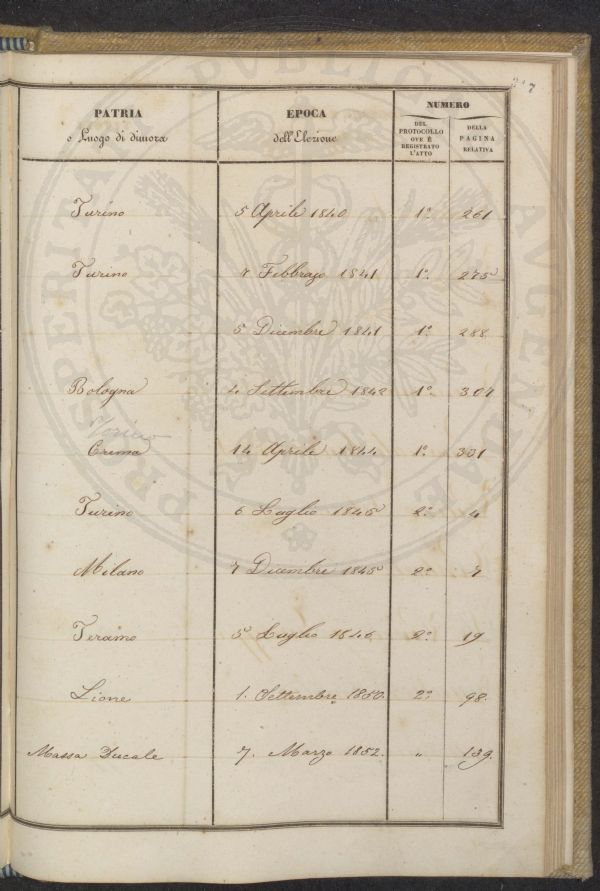 PATRIA
o Luogo di dimora
EPOCA
dell'Elezione
NUMERO
DEL PROTOCOLLO OVE È REGISTRATO L'ATTO
DELLA PAGINA RELATIVA
Turino 5 Aprile 1840 1° 261
Turino Febbrajo 1841 1°. 275
5 Dicembre 1841 1° 288
Bologna 4 Settembre 1842 1° 307
Torino
Crema 14 Aprile 1844 1° 331
Turino 6 Luglio 1845 2° 4
Milano 7 Dicembre 1845 2° 7
Teramo 5 Luglio 1846 2° 19
Lione 1. Settembre 1850. 2° 98.
Massa Ducale 7. Marzo 1852. " 139.
PROSPERITATI PUBLICAE AUGENDAE